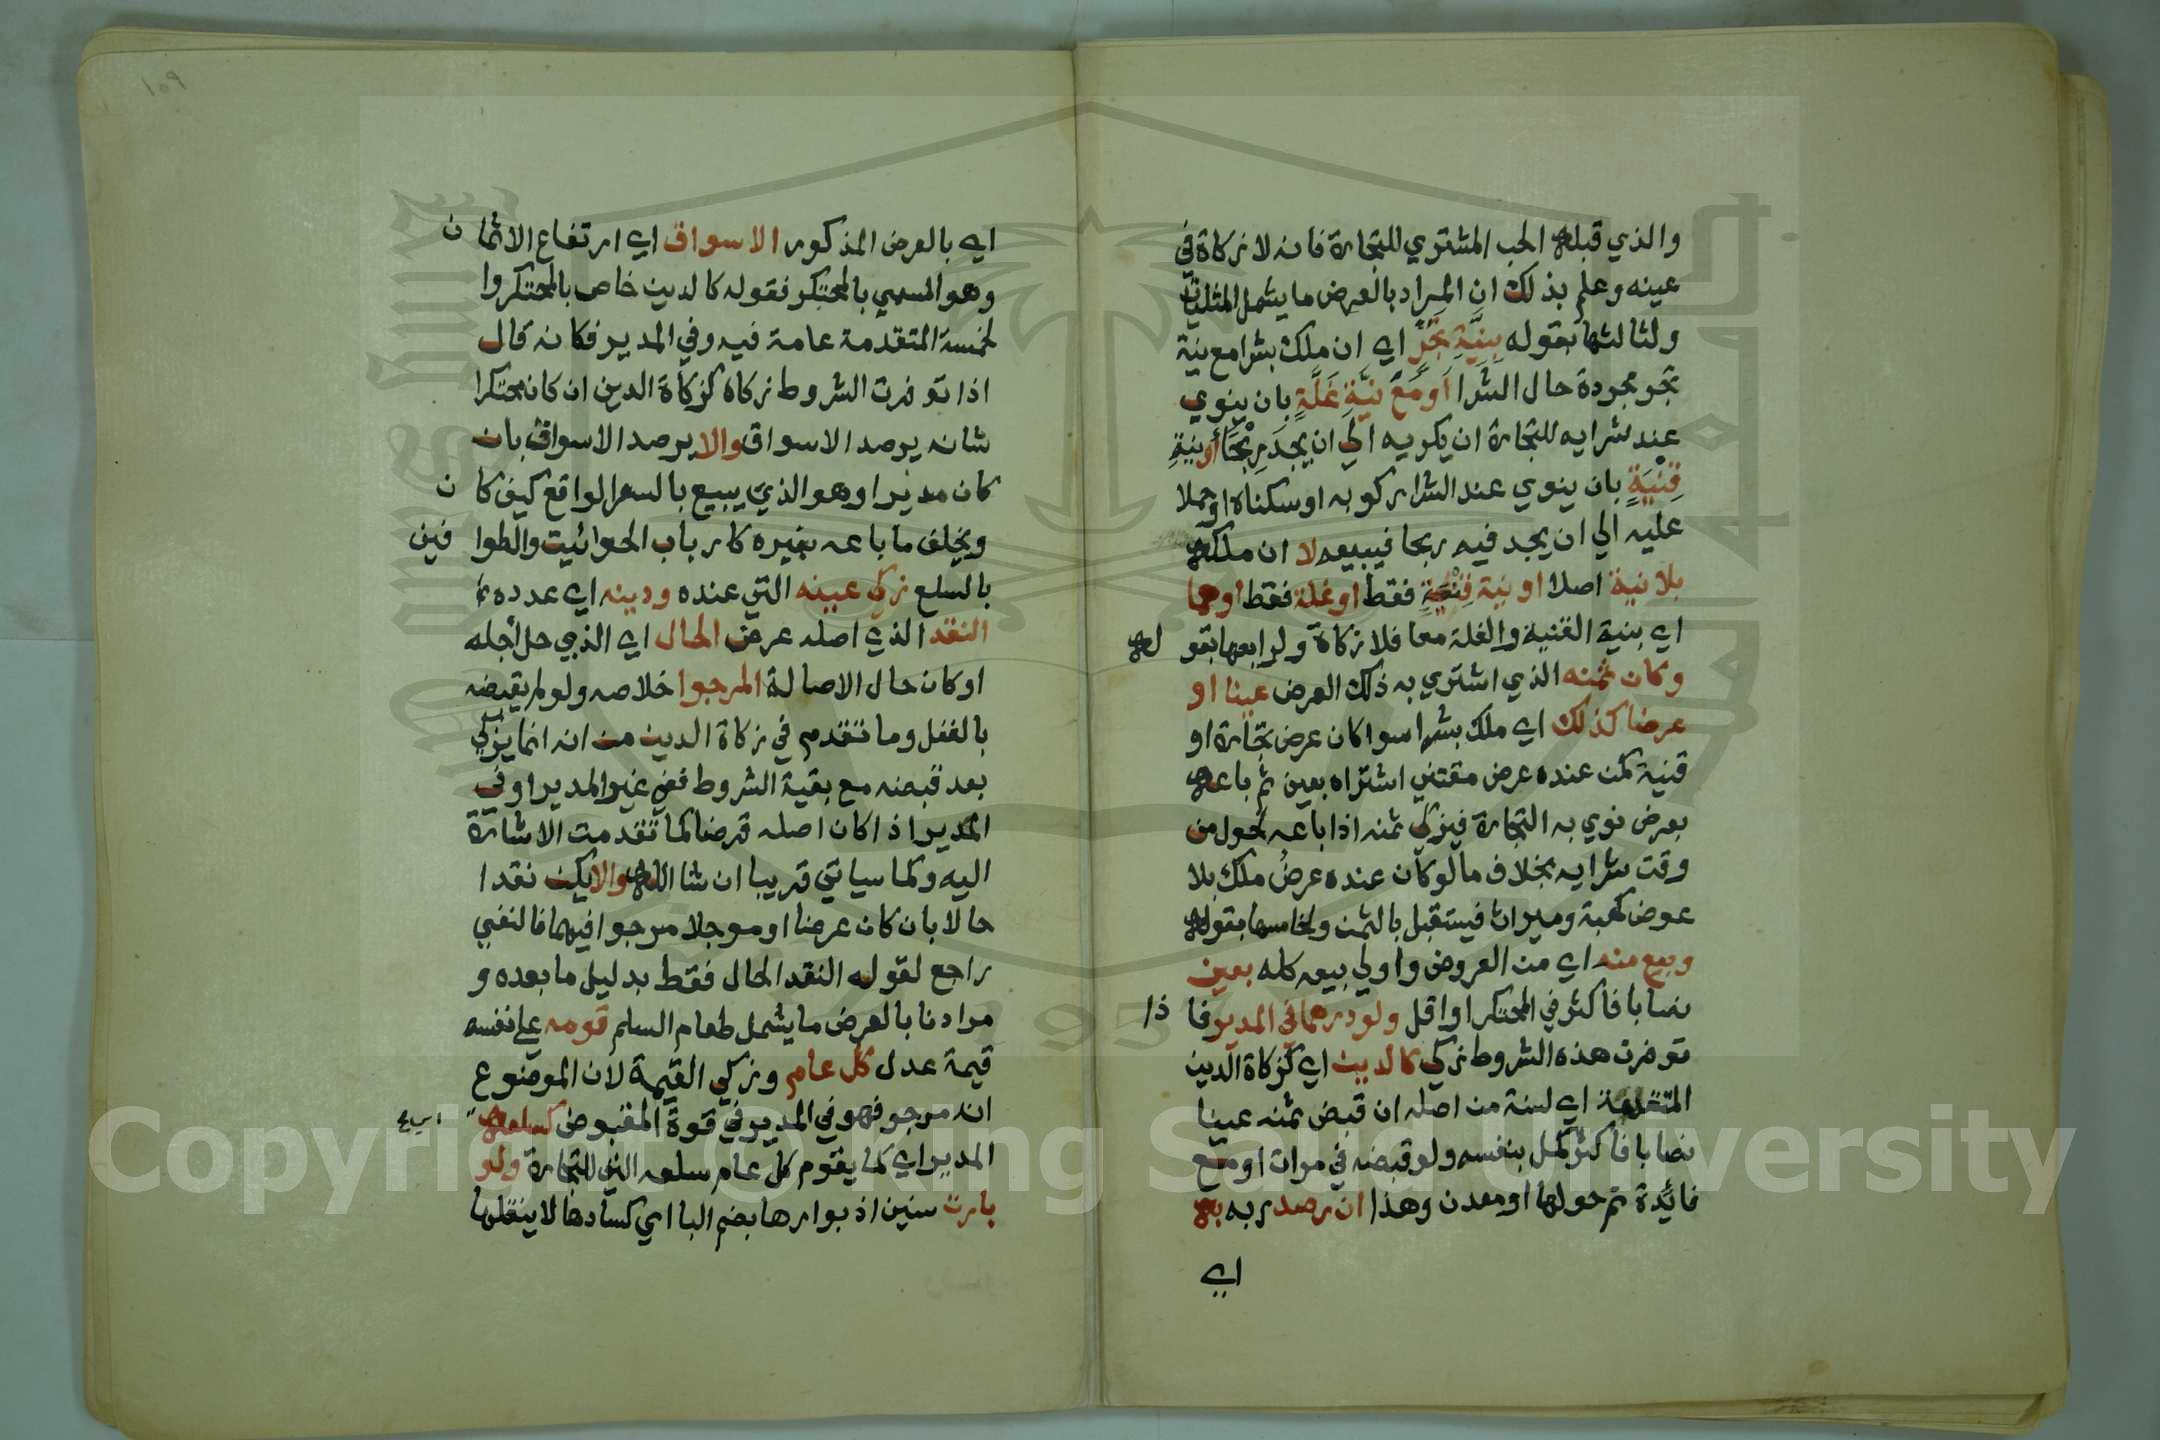 والذي قبله الحب المشتري للتجارة فانه لا زكاة في
عينه وعلم بذلك ان المراد بالعرض ما يشمل المثليات
ولثالثها بقوله بِنِيَّةِ تَجْرٍ اي ان ملك بشرا مع نية
تجر مجردة حال الشرا أو مَعَ نِيَّةِ غَلَّةٍ بان ينوي
عند شرايه للتجارة ان يكريه الي ان يجد رِبْحًا أو نيةِ
قِنْيَةٍ بان ينوي عند الشرا ركوبه او سكناه او حملا
عليه الي ان يجد فيه ربحا فيبيعه لا ان ملكه
بلا نية اصلا او نية قِنْيَةٍ فقط او غلة فقط او هما
اي بنية القنية والغلة معا فلا زكاة ولرابعها بقو له
وكان ثمنه الذي اشتري به ذلك العرض عينا او
عرضا كذلك اي ملك بشرا سوا كان عرض تجارة او
قنية كمن عنده عرض مقتني اشتراه بعين ثم باعه
بعرض نوي به التجارة فيزكي ثمنه اذا باعه لحول من
وقت شرايه بخلاف ما لو كان عنده عرض ملك بلا
عوض كهبة وميراث فيستقبل بالثمن ولخامسها بقوله
وبيع منه اي من العروض واولي بيعه كله بعين
نصابا فاكثر في المحتكر او اقل ولو درهما في المدير فا ذا
توفرت هذه الشروط زكي كالدين اي كزكاة الدين
المتقدمة اي لسنة من اصله ان قبض ثمنه عينا
نصابا فاكثر كمل بنفسه ولو قبضه في مرات او مع
فائدة تم حولها او معدن وهذا ان رصد ربه به
اي
١٥٩
اي بالعرض المذكور الاسواق اي ارتفاع الاثما ن
وهو المسمي بالمحتكر فقوله كالدين خاص بالمحتكر وا
لخمسة المتقدمة عامة فيه وفي المدير فكانه قال
اذا توفرت الشروط زكاه كزكاة الدين ان كان محتكرا
شانه يرصد الاسواق والا يرصد الاسواق بان
كان مديرا وهو الذي يبيع بالسعر الواقع كيف كا ن
ويخلف ما باعه بغيره كارباب الحوانيت والطوا فين
بالسلع زكي عينه التي عنده ودينه اي عدده
النقد الذي اصله عرض الحال اي الذي حل أجله
او كان حال الاصالة المرجوا خلاصه ولو لم يقبضه
بالفعل وما تقدم في زكاة الدين من انه انما يزكي
بعد قبضه مع بقية الشروط ففي غير المدير او في
المدير اذا كان اصله قرضا كما تقدمت الاشارة
اليه وكما سياتي قريبا ان شا الله والا يكن نقدا
حالا بان كان عرضا او موجلا مرجوا فيهما فالنفي
راجع لقوله النقد الحال فقط بدليل ما بعده و
مرادنا بالعرض ما يشمل طعام السلم قومه علي نفسه
قيمة عدل كل عام وزكي القيمة لان الموضوع
انه مرجو فهو في المدير في قوة المقبوض كسلعه
المدير اي كما يقوم كل عام سلعه التي للتجارة ولو
بارت سنين اذ بوارها بضم البا اي كسادها لا ينقلها